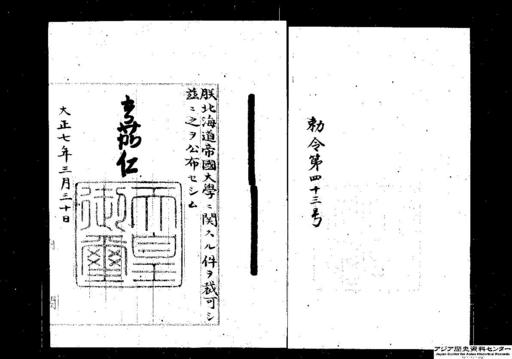 勅令第四十三号
朕北海道帝國大學ニ関スル件ヲ裁可シ
茲ニ之ヲ公布セシム
嘉仁
天皇御璽
大正七年三月三十日
アジア歴史資料センター
Japan Center for Asian Historical Records